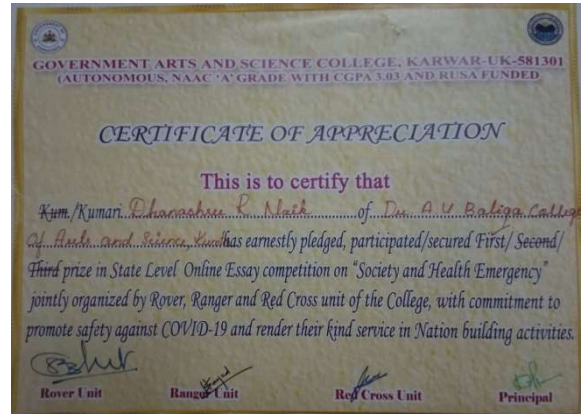 GOVERNMENT ARTS AND SCIENCE COLLEGE, KARWAR-UK-581301
(AUTONOMOUS, NAAC 'A' GRADE WITH CGPA 3.03 AND RUSA FUNDED
CERTIFICATE OF APPRECIATION
This is to certify that
Kum./Kumari. Dhanashree R Naik of Dr. A V Baliga College
Of Arts and Science, has earnestly pledged, participated/secured First/ Second/
Third prize in State Level Online Essay competition on "Society and Health Emergency"
jointly organized by Rover, Ranger and Red Cross unit of the College, with commitment to
promote safety against COVID-19 and render their kind service in Nation building activities.
Rover Unit Ranger Unit Red Cross Unit Principal